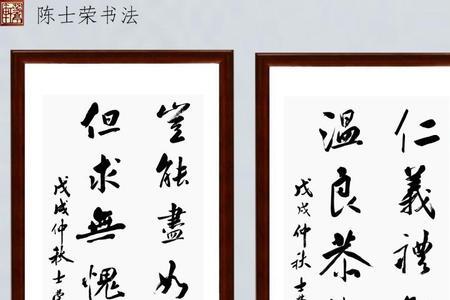 陈士荣书法
豈能盡如
但求無愧
戊戌仲秋士荣
仁義禮
溫良恭
戊戌仲秋士